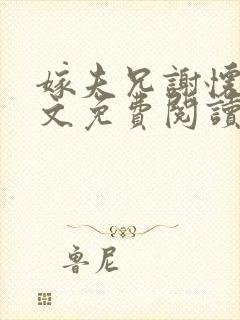 嫁夫兄謝懷
文免費閱讀
魯尼